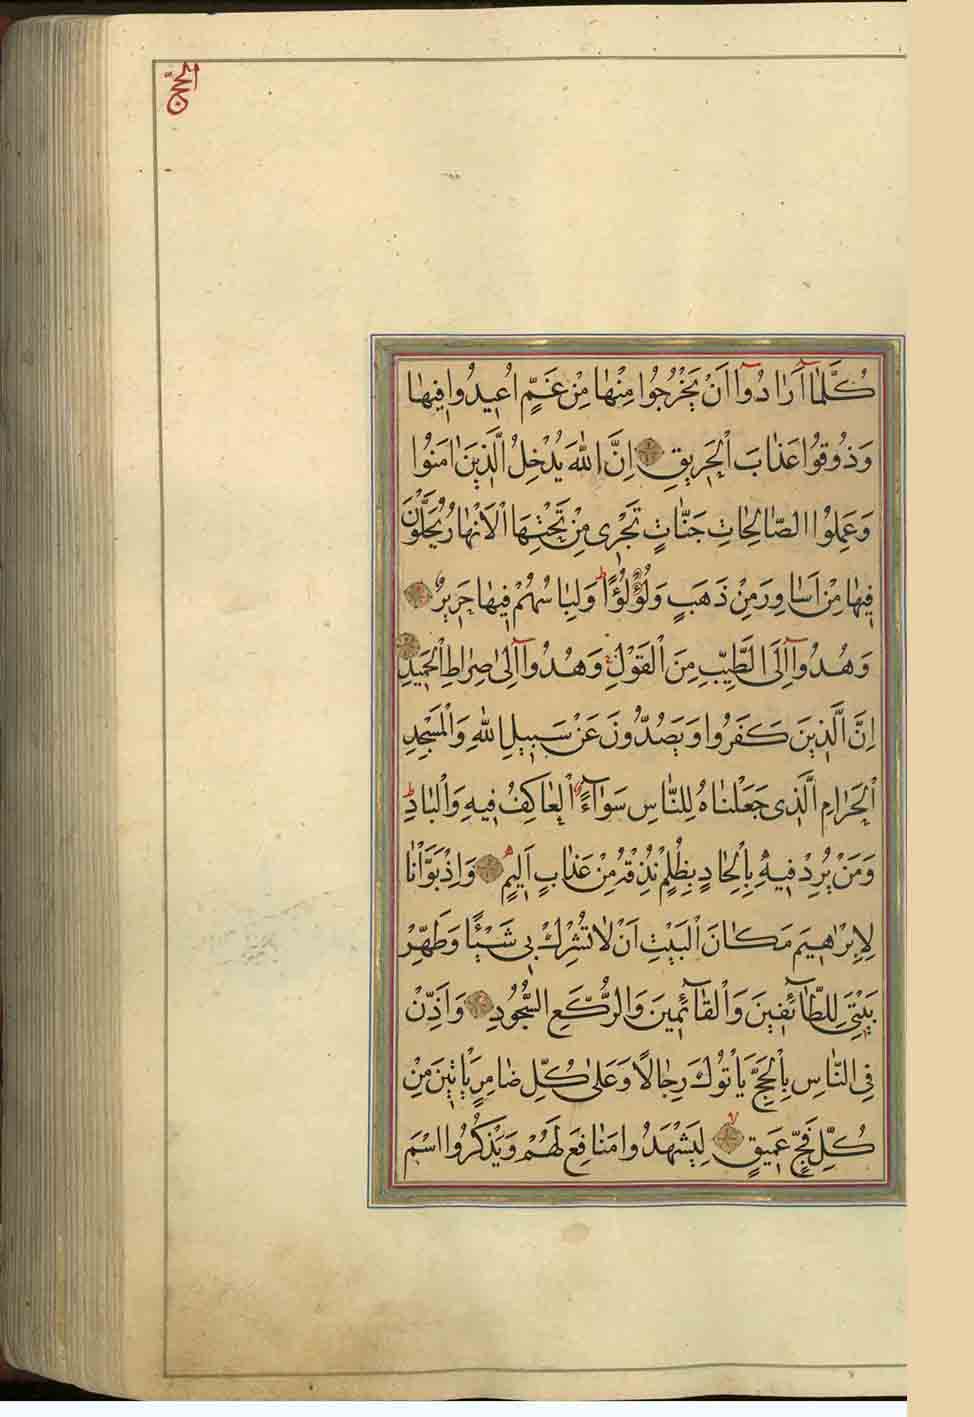 الحج
كُلَّمَا أَرَادُوا أَنْ يَخْرُجُوا مِنْهَا مِنْ غَمٍّ اُعِيدُوا فِيهَا
وَذُوقُوا عَذَابَ الْحَرِيقِ اِنَّ اللهَ يُدْخِلُ الَّذِينَ اٰمَنُوا
وَعَمِلُوا الصَّالِحَاتِ جَنَّاتٍ تَجْرِى مِنْ تَحْتِهَا الْاَنْهَارُ يُحَلَّوْنَ
فِيهَا مِنْ اَسَاوِرَ مِنْ ذَهَبٍ وَلُؤْلُؤًا وَلِبَاسُهُمْ فِيهَا حَرِيرٌ
وَهُدُوآ اِلَى الطَّيِّبِ مِنَ الْقَوْلِ وَهُدُوآ اِلٰى صِرَاطِ الْحَمِيدِ
اِنَّ الَّذِينَ كَفَرُوا وَيَصُدُّونَ عَنْ سَبِيلِ اللهِ وَالْمَسْجِدِ
الْحَرَامِ الَّذِى جَعَلْنَاهُ لِلنَّاسِ سَوَآءً الْعَاكِفُ فِيهِ وَالْبَادِ
وَمَنْ يُرِدْ فِيهِ بِاِلْحَادٍ بِظُلْمٍ نُذِقْهُ مِنْ عَذَابٍ اَلِيمٍ وَاِذْ بَوَّاْنَا
لِاِبْرٰاهِيمَ مَكَانَ الْبَيْتِ اَنْ لَا تُشْرِكْ بِى شَيْئًا وَطَهِّرْ
بَيْتِىَ لِلطَّآئِفِينَ وَالْقَآئِمِينَ وَالرُّكَّعِ السُّجُودِ وَاَذِّنْ
فِى النَّاسِ بِالْحَجِّ يَاْتُوكَ رِجَالًا وَعَلٰى كُلِّ ضَامِرٍ يَاْتِينَ مِنْ
كُلِّ فَجٍّ عَمِيقٍ لِيَشْهَدُوا مَنَافِعَ لَهُمْ وَيَذْكُرُوا اسْمَ